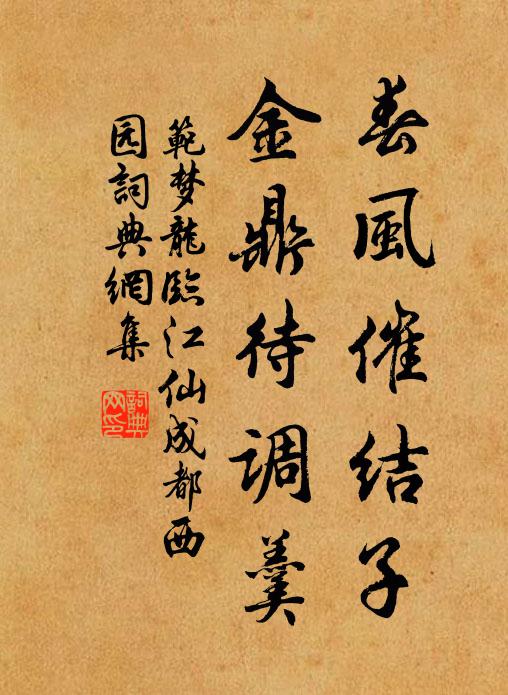 春風催结子
金鼎待调羹
範梦龍臨江仙成都西
园詞典網集
詞典
网印